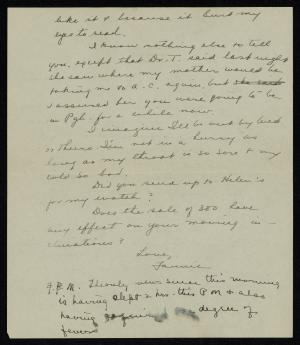 like it & because it hurt my
eyes to read.
I know nothing else to tell
you, except that Dr. T. said last night
she saw where my mother would be
taking me to A.C. again, but she said
I assured her you were going to be
in Pgh. for a while now.
I imagine I'll be out by Wed
or Thurs. I'm not in a hurry as
long as my throat is so sore & my
cold so bad.
Did you send up to Helen's
for my watch?
Does the sale of 300 have
any effect on your moving in-
clinations?
Love,
Fannie
P.M. The only news since this morning
is having slept 2 hrs. this P.M. & also
having degree of
fever